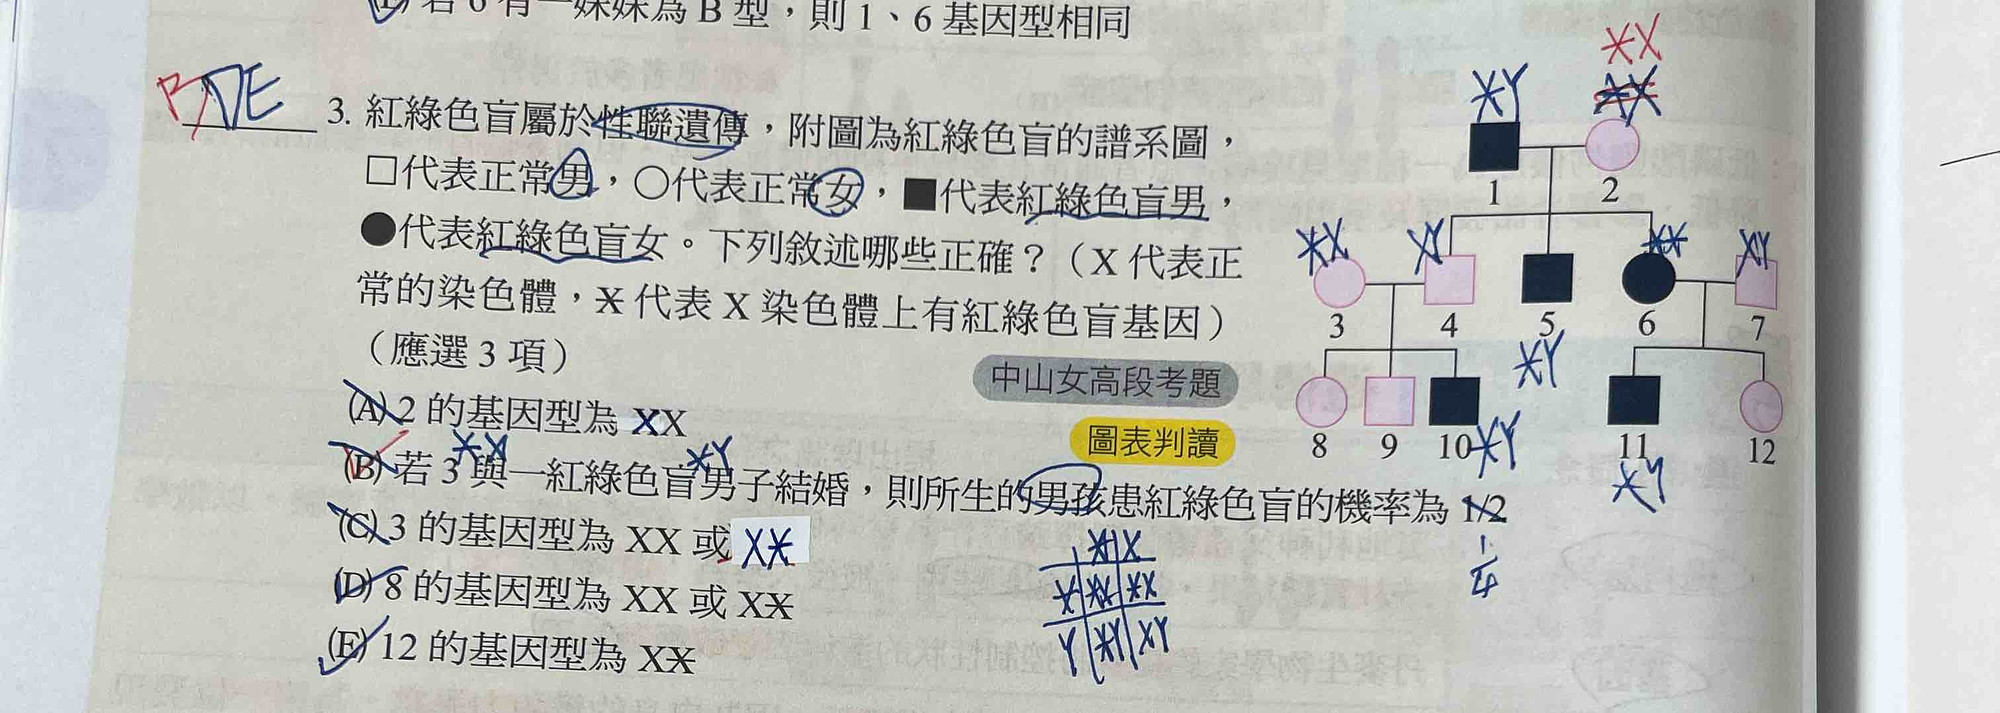 (E) 若 6 有一妹妹為 B 型，則 1、6 基因型相同
BDE
3. 紅綠色盲屬於性聯遺傳，附圖為紅綠色盲的譜系圖，
□代表正常男，○代表正常女，■代表紅綠色盲男，
●代表紅綠色盲女。下列敘述哪些正確？（X 代表正
常的染色體，X̶ 代表 X 染色體上有紅綠色盲基因）
（應選 3 項）
中山女高段考題
圖表判讀
(A) 2 的基因型為 XX
X̶X X̶Y
(B) 若 3 與一紅綠色盲男子結婚，則所生的男孩患紅綠色盲的機率為 1/2
1/4
(C) 3 的基因型為 XX 或 XX̶
(D) 8 的基因型為 XX 或 XX̶
(E) 12 的基因型為 XX̶
X̶ X
X̶ X̶X̶ X̶X
Y X̶Y XY
X̶X
X̶Y X̶X
1 2
X̶X XY X̶X̶ XY
3 4 5 6 7
X̶Y
8 9 10 X̶Y 11 12
X̶Y